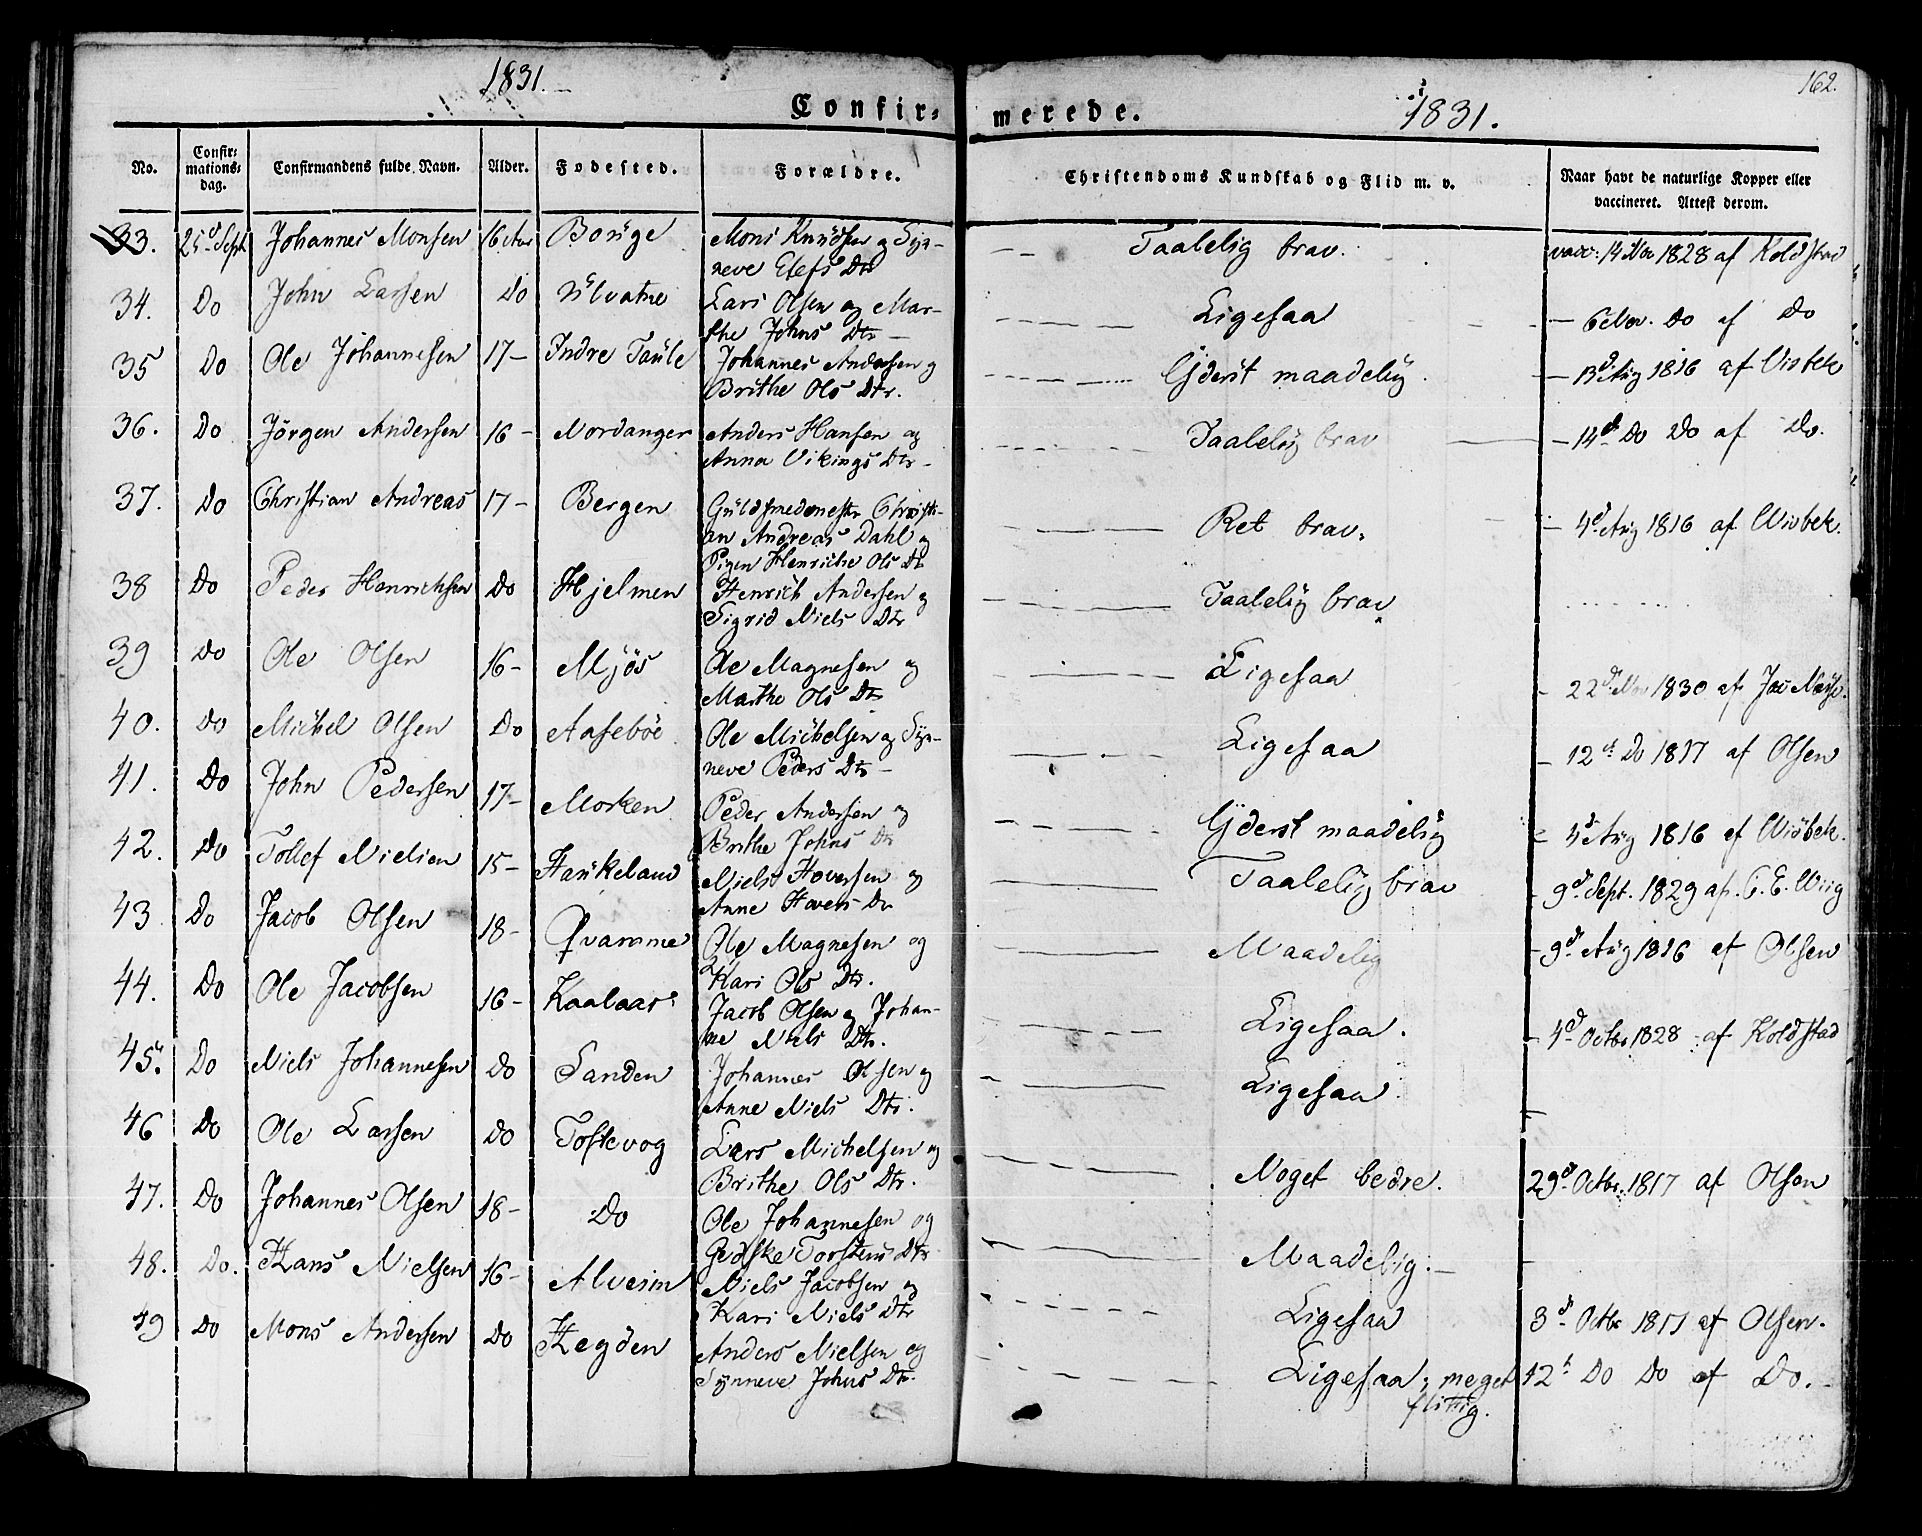 1831.
162.
Confir= merede. 1831.
No. Confir= mations= dag. Confirmandens fulde Navn. Alder. Fodested. Forældre. Christendoms Kundskab og Flid m. v. Naar havt de naturlige Kopper eller vaccineret. Attest derom.
33. 25d Sept Johannes Monsen 16 Aar Bouge Mons Knudsen og Syn- Taalelig brav. vacc: 14 Nov 1828 af Koldstad
neve Elefs Dtr
34. Do John Larsen Do Ulvatne Lars Olsen og Mar- Ligesaa 6 Nov. Do af Do
the Johns Dtr
35 Do Ole Johannesen 17- Indre Taule Johannes Andersen og Yderst maadelig. 13d Aug 1816 af Visbek
Brithe Ols Dtr.
36. Do Jörgen Andersen 16- Nordanger Anders Hansen og Taalelig brav 14d Do Do af Do.
Anna Vikings Dtr
37. Do Christian Andreas 17- Bergen Guldsmedmester Christi- Ret brav. 4d Aug 1816 af Wisbek.
an Andreas Dahl og
Pigen Henriche Ols Dtr
38 Do Peder Henrichsen Do Hjelmen Henrich Andersen og Taalelig brav
Sigrid Niels Dtr
39 Do Ole Olsen 16- Mjös Ole Magnesen og Ligesaa 22d Nov 1830 af Jac
Marthe Ols Dtr
40. Do Michel Olsen Do Aaseböe Ole Michelsen og Syn- Ligesaa 12d Do 1817 af Olsen
neve Peders Dtr
41. Do John Pedersen 17- Morken Peder Andersen og Yderst maadelig 4d Aug 1816 af Wisbek.
Brithe Johns Dtr
42. Do Tollef Nielsen 15- Haukeland Niels Haversen og Taalelig brav 9d Sept. 1829 af C. E. Wiig
Anne Havers Dtr
43 Do Jacob Olsen 18- Qvamme Ole Magnesen og Maadelig 9d Aug 1816 af Olsen
Kari Ols Dtr.
44. Do Ole Jacobsen 16- Kaalaas Jacob Olsen og Johan- Ligesaa. 4d Octbr 1828 af Koldstad
ne Niels Dtr.
45. Do Niels Johannesen Do Sanden Johannes Olsen og Ligesaa.
Anne Niels Dtr.
46 Do Ole Larsen Do Toskevog Lars Michelsen og Noget bedre. 29d Octbr. 1817 af Olsen
Brithe Ols Dtr.
47. Do Johannes Olsen 18- Do Ole Johannesen og Maadelig.
Gjedske Torstens Dtr
48. Do. Hans Nielsen 16- Alvesin Niels Jacobsen og Ligesaa 3d Octbr 1817 af Olsen.
Kari Niels Dtr
49 Do Mons Andersen Do Hegden Anders Nielsen og Ligesaa, meget 12t Do Do af Do.
Synneve Johns Dtr. flittig.